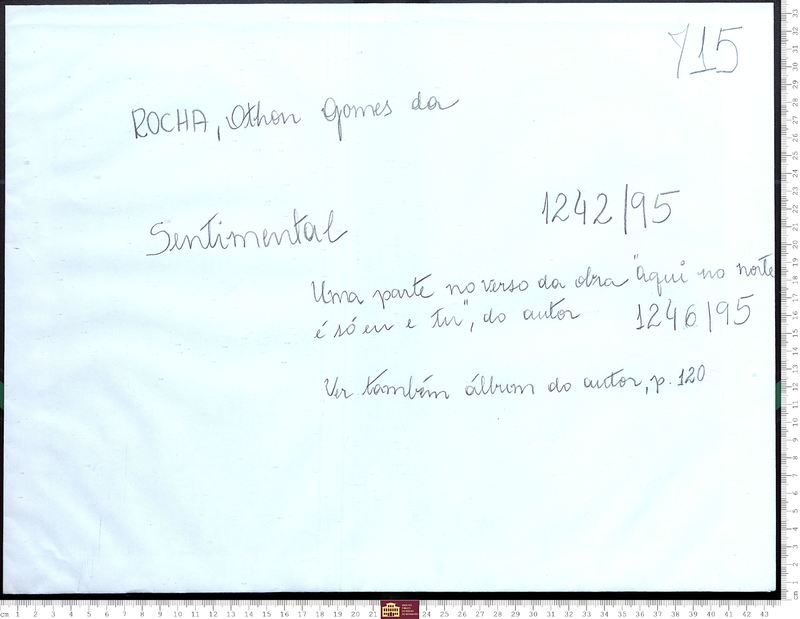 715
ROCHA, Othon Gomes da
Sentimental 1242/95
Uma parte no verso da obra "aqui no norte
é só eu e tu", do autor 1246/95
Ver também álbum do autor, p. 120